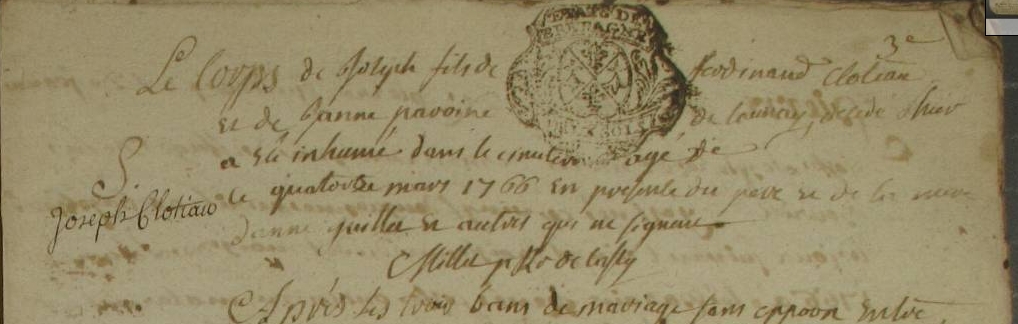 3e
Le Corps de Joseph fils de ferdinand Clotiau
et de Janne pavoine de launay, décédé d'hier
a esté inhumé dans le cimetiere agé de
le quatorze mars 1766 en presence du pere et de la mere
S. Joseph Clotiau
Janne guillet et autres qui ne signent
Millet p
Après les trois bans de mariage sans oppoon
ETATS DE
BRETAGNE